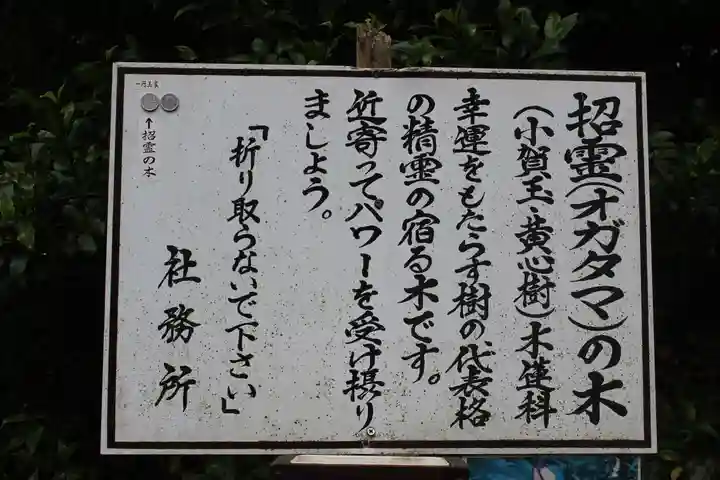 招霊(オガタマ)の木
(小賀玉、黄心樹)木蓮科
幸運をもたらす樹の代表格
の精霊の宿る木です。
近寄ってパワーを受け摂り
ましょう。
「折り取らないで下さい」
社務所
一円玉裏
↑招霊の木